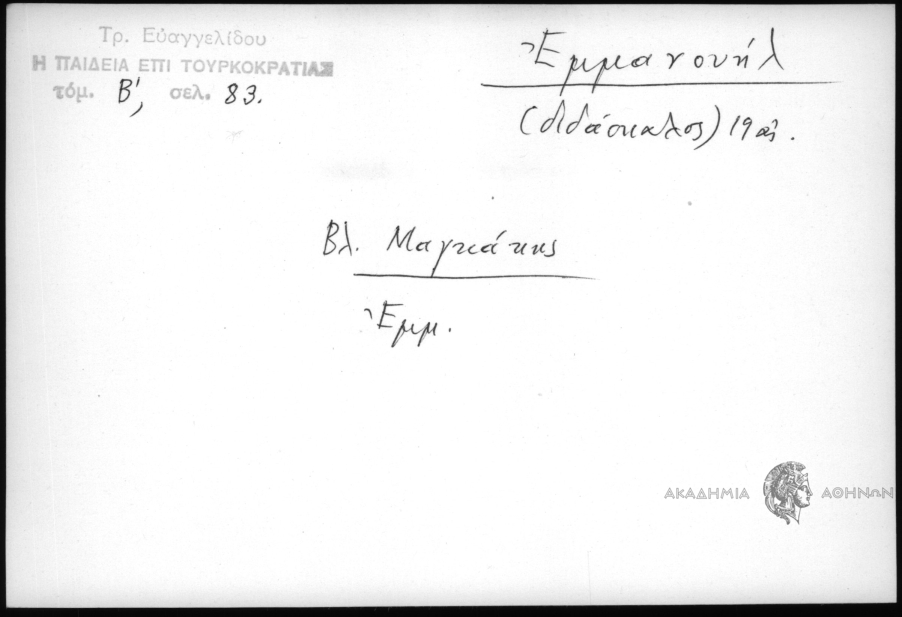 Τρ. Εὐαγγελίδου
Η ΠΑΙΔΕΙΑ ΕΠΙ ΤΟΥΡΚΟΚΡΑΤΙΑΣ
τόμ. Β', σελ. 83.
Ἐμμανουήλ
(διδάσκαλος) 19 αἰ.
Βλ. Μαγκάκης
Ἐμμ.
ΑΚΑΔΗΜΙΑ ΑΘΗΝΩΝ